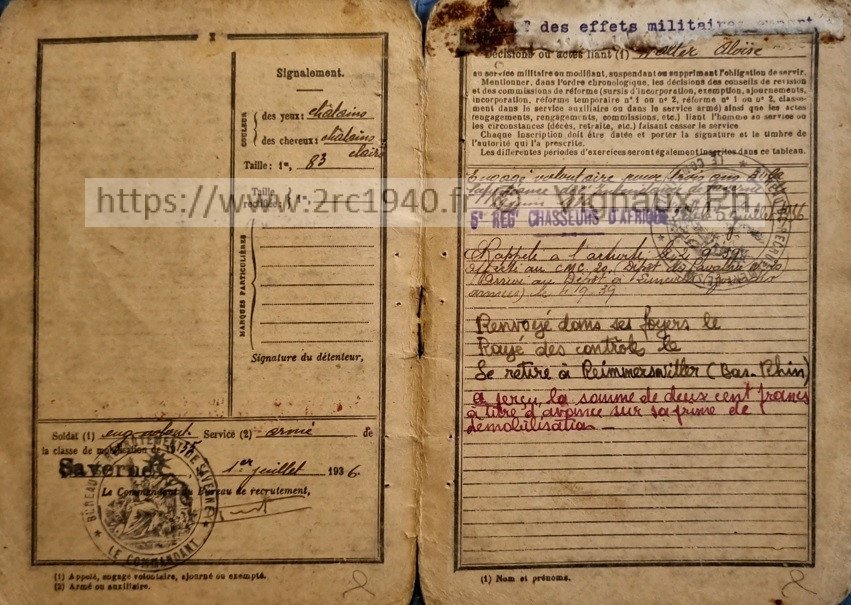 X
Signalement.
COULEUR
des yeux: châtains
des cheveux: châtains
clairs
Taille: 1m, 83
Taille
rectifiée, 1m
MARQUES PARTICULIÈRES
Signature du détenteur,
Soldat (1) eng. volont. Service (2) armé de
la classe de mobilisation de 1935
Saverne, 1er juillet 1936.
Le Commandant du Bureau de recrutement,
BUREAU DE RECRUTEMENT DE SAVERNE
LE COMMANDANT
(1) Appelé, engagé volontaire, ajourné ou exempté.
(2) Armé ou auxiliaire.
https://www.2rc1940.fr Vignaux Ph.
des effets militaires
Décisions ou actes liant (1) Walter Aloïse
au service militaire ou modifiant, suspendant ou supprimant l'obligation de servir.
Mentionner, dans l'ordre chronologique, les décisions des conseils de revision
et des commissions de réforme (sursis d'incorporation, exemption, ajournements,
incorporation, réforme temporaire n° 1 ou n° 2, réforme n° 1 ou n° 2, classe-
ment dans le service auxiliaire ou dans le service armé) ainsi que les actes
(engagements, rengagements, commissions, etc.) liant l'homme au service ou
les circonstances (décès, retraite, etc.) faisant cesser le service
Chaque inscription doit être datée et porter la signature et le timbre de
l'autorité qui l'a prescrite.
Les différentes périodes d'exercices seront également inscrites dans ce tableau.
Engagé volontaire pour trois ans
5e REGt CHASSEURS D'AFRIQUE
Rappelé à l'activité le 2.9.39
Affecté au C.M.C. 20, Dépôt de Cavalerie
Arrivé au Dépôt à Lunéville
le 4.9.39
Renvoyé dans ses foyers le
Rayé des contrôles le
Se retire à Reimmerswiller (Bas-Rhin)
a perçu la somme de deux cent francs
à titre d'avance sur sa prime de
démobilisation -
(1) Nom et prénoms.